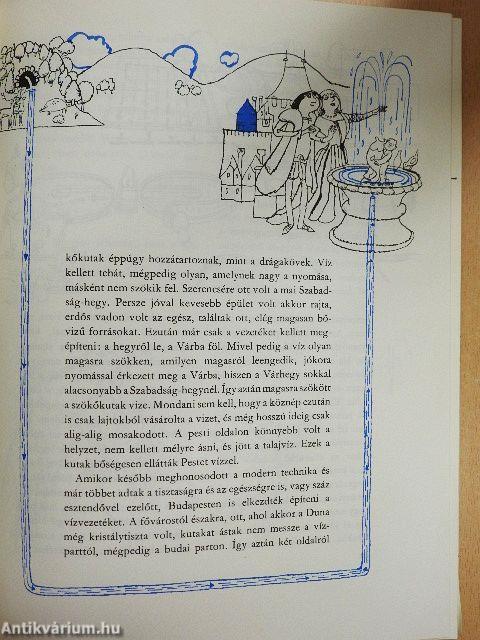 kőkutak éppúgy hozzátartoznak, mint a drágakövek. Víz
kellett tehát, mégpedig olyan, amelynek nagy a nyomása,
másként nem szökik fel. Szerencsére ott volt a mai Szabad-
ság-hegy. Persze jóval kevesebb épület volt akkor rajta,
erdős vadon volt az egész, találtak ott, elég magasan bő-
vizű forrásokat. Ezután már csak a vezetéket kellett meg-
építeni: a hegyről le, a Várba föl. Mivel pedig a víz olyan
magasra szökken, amilyen magasról leengedik, jókora
nyomással érkezett meg a Várba, hiszen a Várhegy sokkal
alacsonyabb a Szabadság-hegynél. Így aztán magasra szökött
a szökőkutak vize. Mondani sem kell, hogy a köznép ezután
is csak lajtokból vásárolta a vizet, és még hosszú ideig csak
alig-alig mosakodott. A pesti oldalon könnyebb volt a
helyzet, nem kellett mélyre ásni, és jött a talajvíz. Ezek a
kutak bőségesen ellátták Pestet vízzel.
Amikor később meghonosodott a modern technika és
már többet adtak a tisztaságra és az egészségre is, vagy száz
esztendővel ezelőtt, Budapesten is elkezdték építeni a
vízvezetéket. A fővárostól északra, ott, ahol akkor a Duna
még kristálytiszta volt, kutakat ástak nem messze a víz-
parttól, mégpedig a budai parton. Így aztán két oldalról
Antikvárium.hu